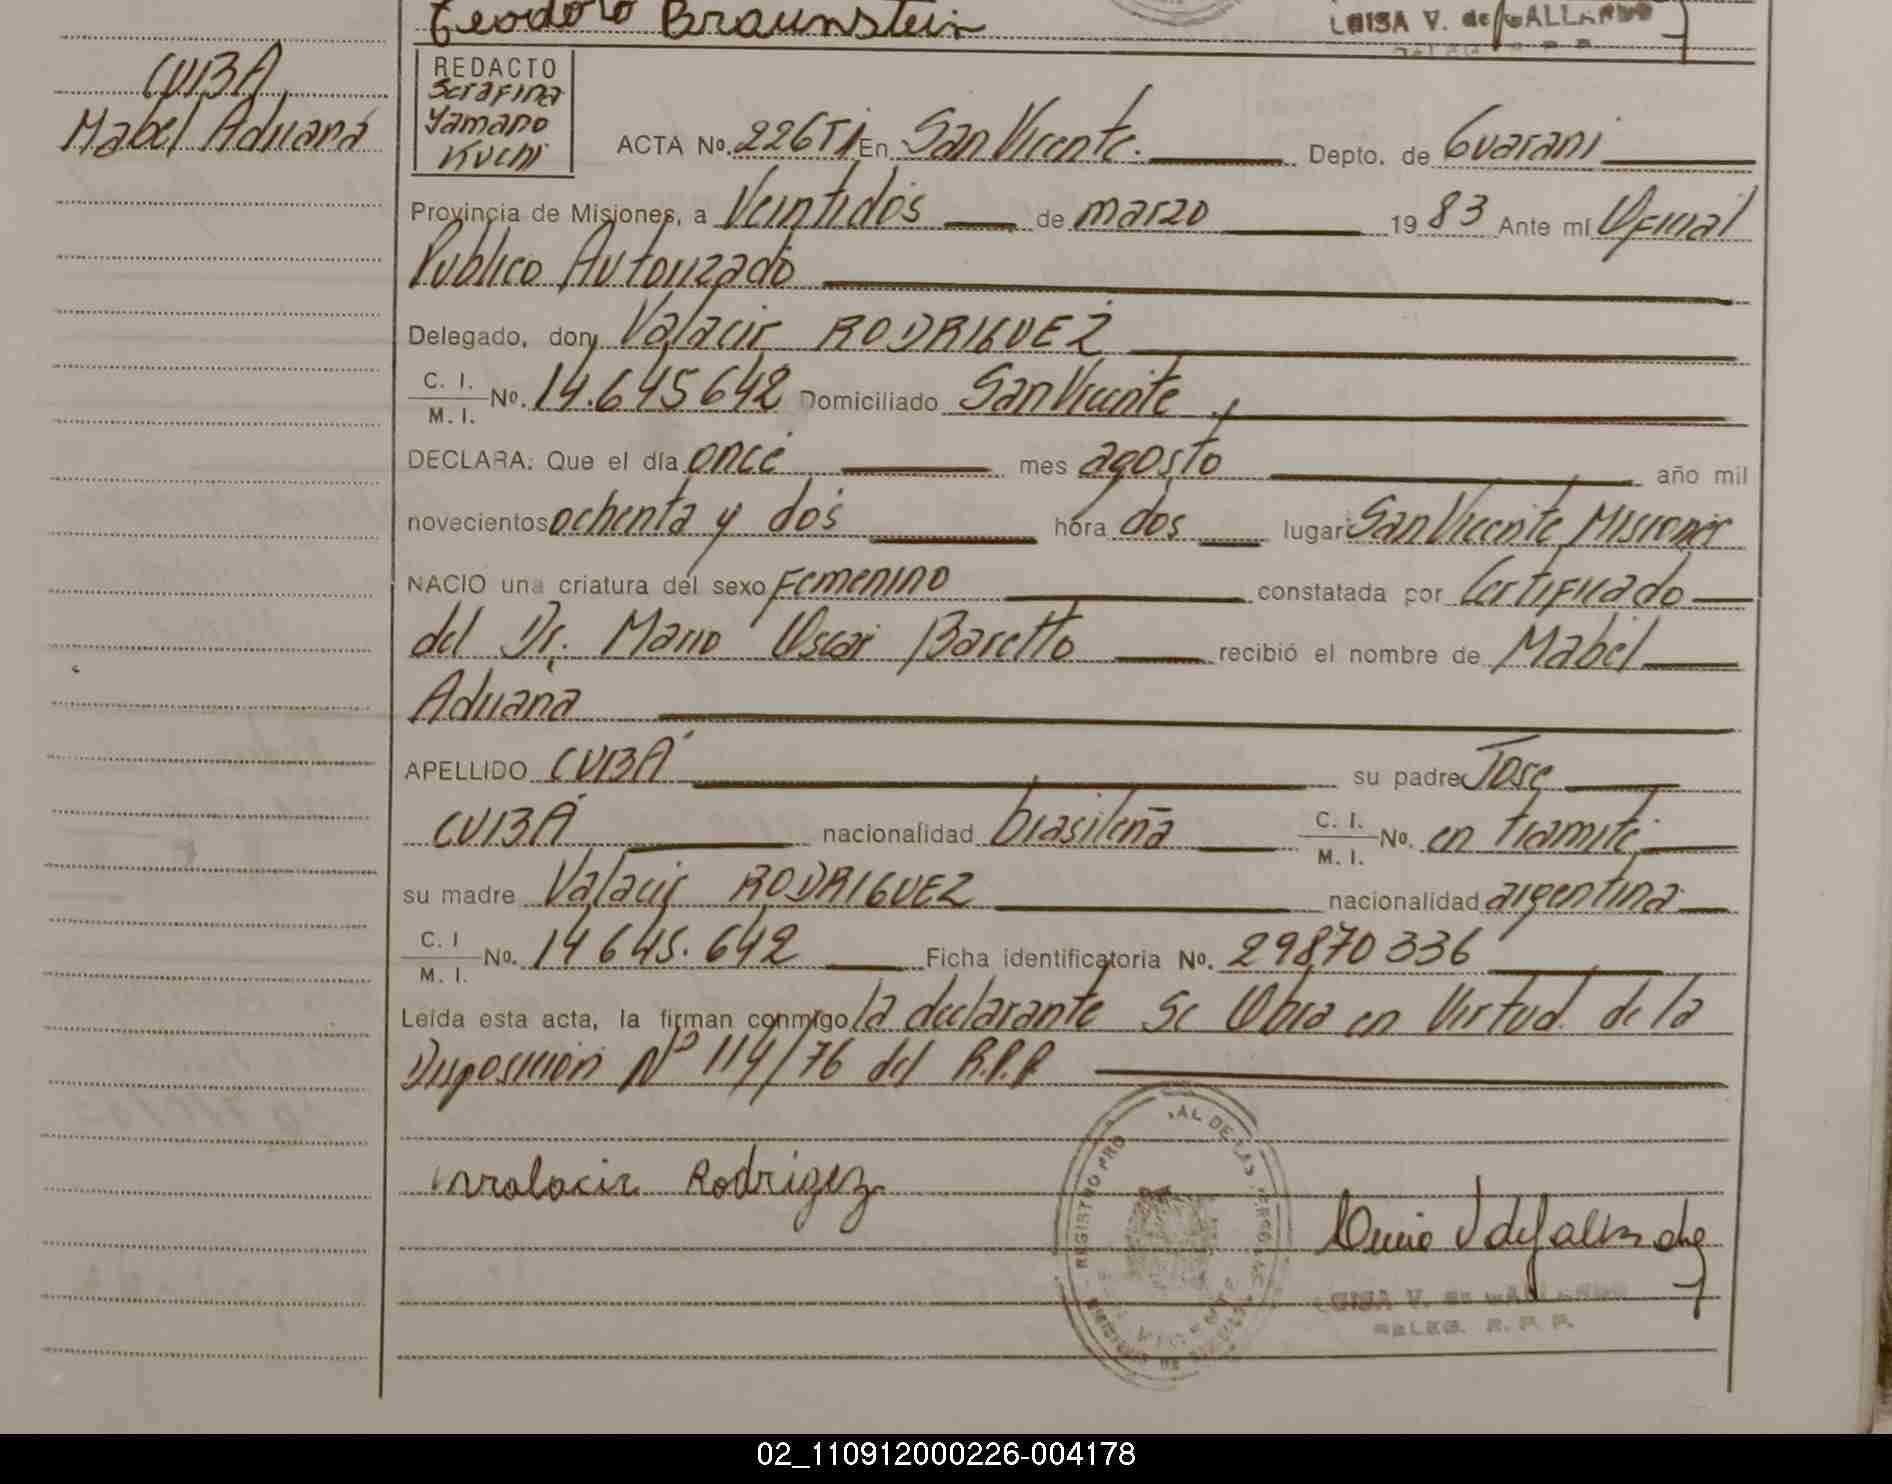 Teodoro Braunstein
LUISA V. de GALLARDO
CUBA
Mabel Aduana
REDACTO
Serafina
Yamano
Kuchi
ACTA No. 226T1 En San Vicente. Depto. de Guarani
Provincia de Misiones, a Veintidos de marzo 19 83 Ante mí Oficial
Publico Autorizado
Delegado, don Valacir RODRIGUEZ
C. I.
M. I. No. 14.645642 Domiciliado San Vicente
DECLARA: Que el día once mes agosto año mil
novecientos ochenta y dos hora dos lugar San Vicente Misiones
NACIO una criatura del sexo Femenino constatada por Certificado
del Dr. Mario Oscar Baretto recibió el nombre de Mabel
Aduana
APELLIDO CUBÁ su padre Jose
CUBÁ nacionalidad brasileña C. I.
M. I. No. en tramite
su madre Valacir RODRIGUEZ nacionalidad argentina
C. I
M. I. No. 14 645.642 Ficha identificatoria No. 29870336
Leída esta acta, la firman conmigo la declarante Se Obra en Virtud de la
Disposicion Nº 114/76 del R.P.P
Valacir Rodrigez
REGISTRO PRO AL DE LAS
VICENTE
LUISA V. de GALLARDO
DELEG. R. P. P.
02_110912000226-004178